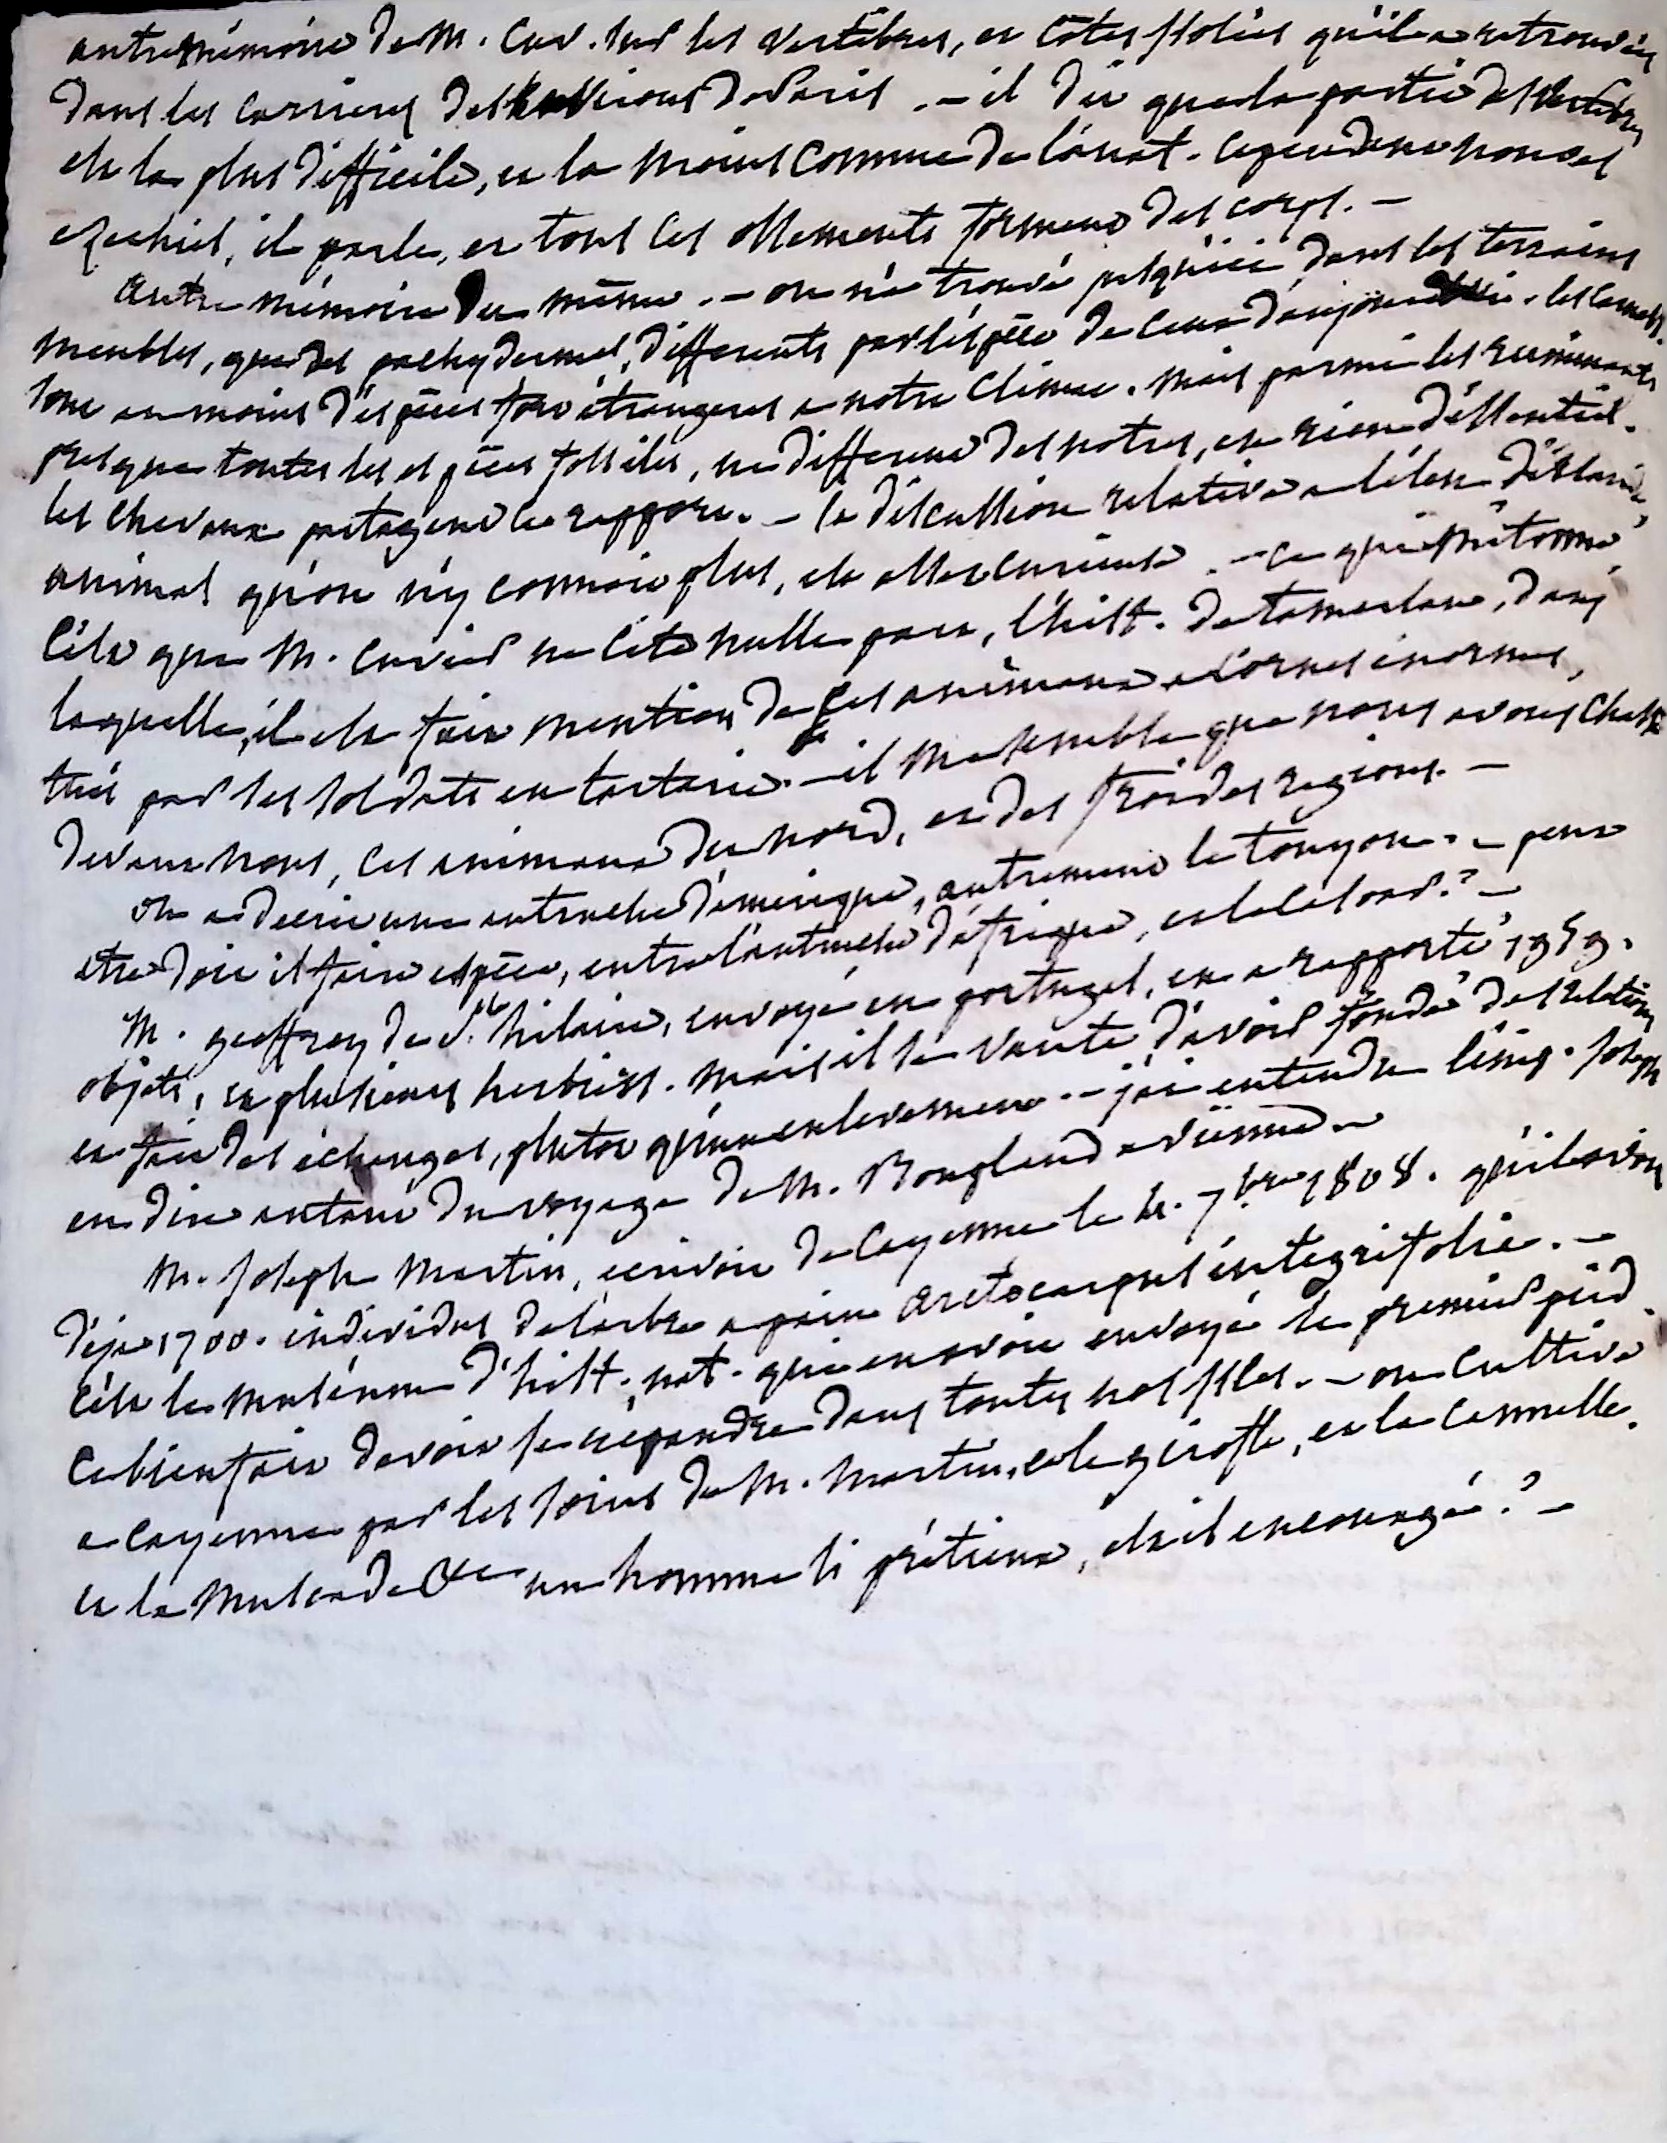 autre mémoire de M. Cuv. sur les vertèbres, et côtes isolées qu'il a retrouvées
dans les carrieres des environs de Paris. – il dit que la partie des vertebres
est la plus difficile, et la moins connue de l'anat. cependant nouvel
ezechiel, il parle, et tous ces ossements forment des corps. –
autre mémoire du même. – on n'a trouvé jusqu'ici dans les terrains
meubles, que des pachydermes, differents par l'espèce de ceux d'aujourd'hui. les carnass.
sont au moins d'espèces fort étrangeres a notre climat. mais parmi les ruminants
presque toutes les espèces fossiles, ne different des notres, en rien d'essentiel.
les chevaux partagent ce rapport. – la discussion relative a l'élan d'irlande,
animal qu'on n'y connoit plus, est assez curieuse. – ce qui m'étonne,
c'est que M. Cuvier ne cite nulle part, l'hist. de tamerlan, dans
laquelle, il est fait mention de ces animaux a cornes enormes,
tués par ses soldats en tartarie. – il me semble que nous avons chassé
devant nous, ces animaux du nord, et des froides regions. –
on a decrit une autruche d'amérique, autrement le touyou. – peut
etre doit il faire espèce, entre l'autruche d'afrique, et le casoar? –
M. geoffroy de St. hilaire, envoyé en portugal, en a rapporté
objets, et plusieurs herbiers. mais il se vante d'avoir fondé des relations
et fait des échanges, plutot qu'un enlevement. – j'ai entendu l'emp. joseph
en dire autant du voyage de M. Bouglend a vienne. –
M. joseph Martin, ecrivoit de Cayenne le 7bre 1808. qu'il avoit
déja 1700. individus de l'arbre a pain artocarpus integrifolia. –
c'est le muséum d'hist. nat. qui en avoit envoyé le premier pied.
ce bienfait devoit se répandre dans toutes nos isles. – on cultive
a Cayenne par les soins de M. Martin, et le girofle, et la cannelle.
et la muscade &c un homme si prétieux, est il encouragé? –